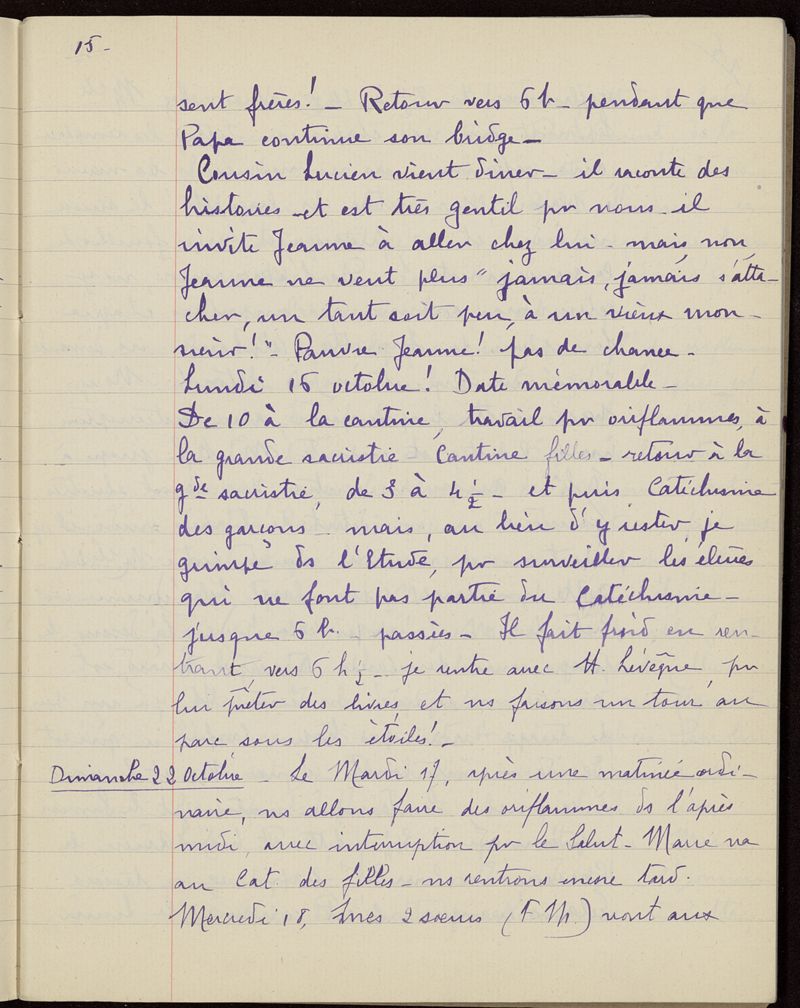 15-
sent frères! - Retour vers 6h - pendant que
Papa continue son bridge -
Cousin Lucien vient dîner - il raconte des
histoires et est très gentil pr nous - il
invite Jeanne à aller chez lui - mais, non,
Jeanne ne veut plus "jamais, jamais s'atta-
cher, un tant soit peu, à un vieux mon-
sieur!" - Pauvre Jeanne! pas de chance -
Lundi 16 octobre! Date mémorable -
De 10 à la cantine, travail pr oriflammes, à
la grande sacristie Cantine filles - retour à la
gde sacristie, de 3 à 4 1/2 - et puis Catéchisme
des garçons - mais, au lieu d'y rester, je
grimpe ds l'Etude, pr surveiller les élèves
qui ne font pas partie du Catéchisme -
jusque 6h. passées - Il fait froid en ren-
trant, vers 6h 1/2 - je rentre avec H. Lévêque, pr
lui prêter des livres, et ns faisons un tour au
parc sous les étoiles! -
Dimanche 22 Octobre Le Mardi 17, après une matinée ordi-
naire, ns allons faire des oriflammes ds l'après
midi, avec interruption pr le Salut - Marie va
au Cat. des filles - ns rentrons encore tard.
Mercredi 18, 2 soeurs vont aux